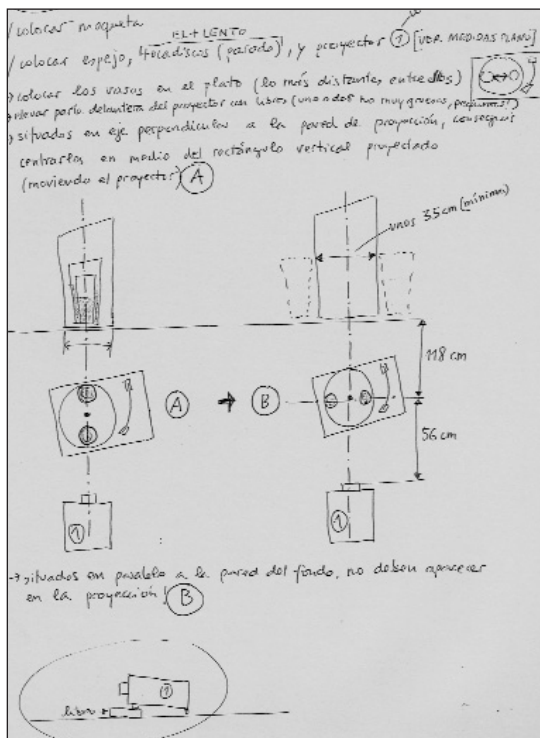 / colocar maqueta
EL + LENTO
/ colocar espejo, tocadiscos (parado), y proyector ① [VER MEDIDAS PLANO]
→ colocar los vasos en el plato (lo más distantes entre ellos)
→ elevar parte delantera del proyector con libros (uno o dos no muy gruesos, pequeños!)
→ situados en eje perpendicular a la pared de proyección, conseguir
centrarlos en medio del rectángulo vertical proyectado
(moviendo el proyector) Ⓐ
unos 35 cm (mínimo)
118 cm
A → B
56 cm
① ①
→ situados en paralelo a la pared del fondo, no deben aparecer
en la proyección! Ⓑ
①
libro